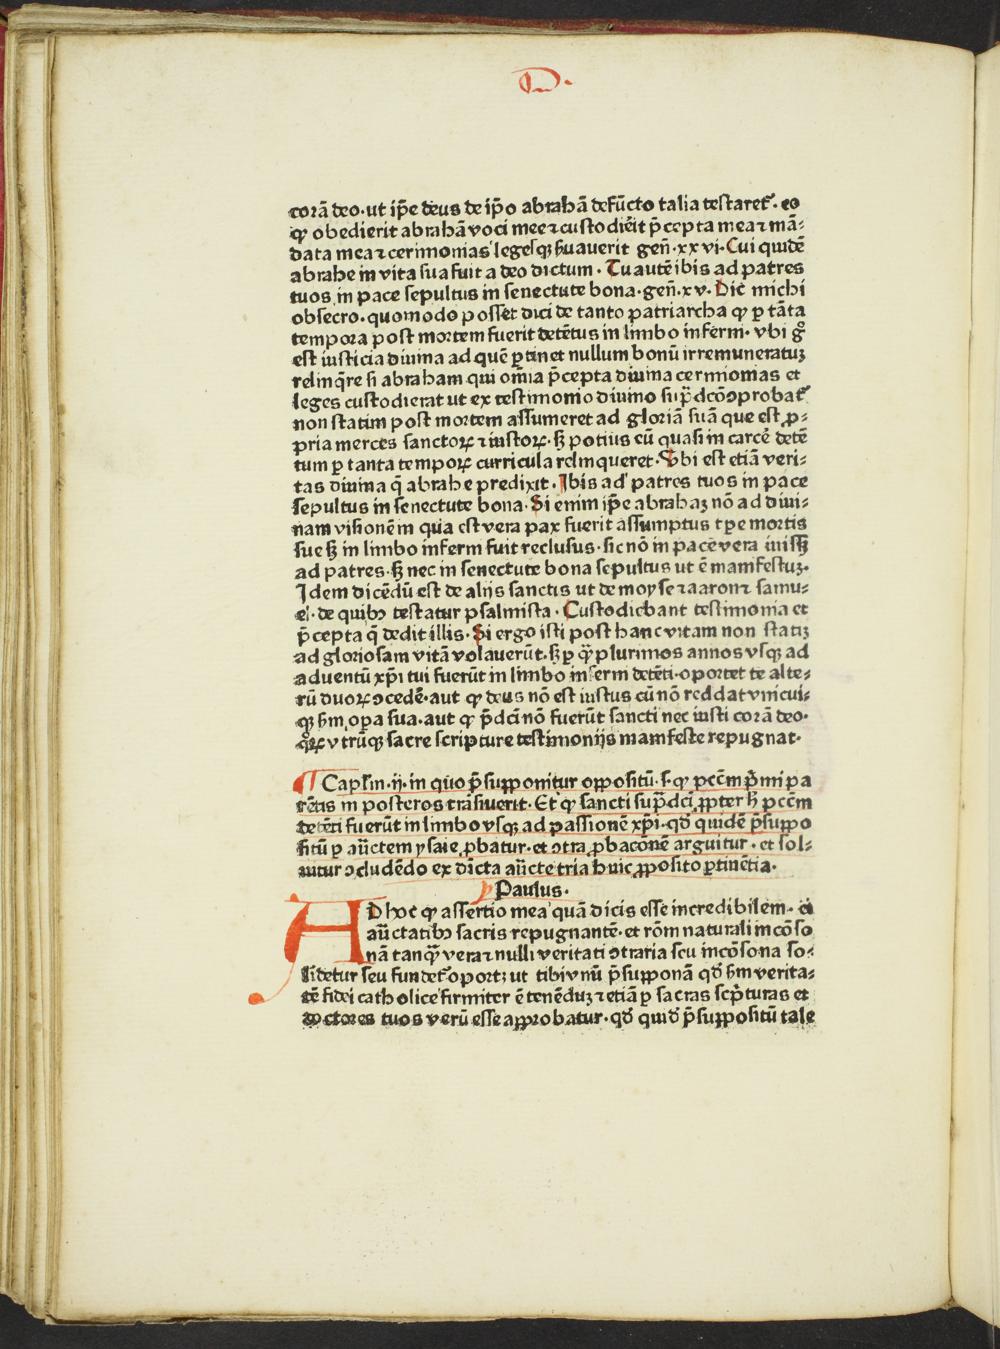 corā deo·ut ip̄e deus de ip̄o abrahā defūcto talia testaretᷣ· eo
ꝙ obedierit abrahā voci mee ⁊ custodierit p̄cepta mea ⁊ mā⸗
data mea ⁊ cerimonias legesqꝫ ẜuauerit gen̄·xxvi·Cui quidē
abrahe in vita sua fuit a deo dictum· Tu autē ibis ad patres
tuos in pace sepultus in senectute bona·gen̄·xv·Dic michi
obsecro·quomodo posset dici de tanto patriarcha ꝙ ꝑ tāta
tempora post mortem fuerit detētus in limbo inferni·vbi gͦ
est iusticia diuina ad quē ꝑtinet nullum bonū irremuneratuꝫ
relinq̄re si abraham qui om̄ia p̄cepta diuina cerimonias et
leges custodierat ut ex testimonio diuino sup̄dcō ꝯprobatᷣ
non statim post mortem assumeret ad gloriā suā que est ꝓ⸗
pria merces sanctoꝝ ⁊ iustoꝝ· sꝫ potius cū quasi in carcē detē
tum ꝑ tanta tempoꝝ curricula relinqueret·Vbi est etiā veri⸗
tas diuina q̄ abrahe predixit·Ibis ad patres tuos in pace
sepultus in senectute bona·Si enim ip̄e abrahaꝫ nō ad diui⸗
nam visionē in qua est vera pax fuerit assumptus tꝑe mortis
sue sꝫ in limbo inferni fuit reclusus·sic nō in pace vera iuissꝫ
ad patres·sꝫ nec in senectute bona sepultus ut ē manifestuꝫ·
Idem dicēdū est de alijs sanctis ut de moyse ⁊ aaron ⁊ samu⸗
el·de quibꝫ testatur psalmista·Custodiebant testimonia et
p̄cepta q̄ dedit illis·Si ergo isti post hanc vitam non statiꝫ
ad gloriosam vitā volauerūt·sꝫ ꝑ qꝫ̄ plurimos annos vsqꝫ ad
aduentū xp̄i tui fuerūt in limbo inferni detēti·oportet te alte⸗
rū duoꝝ ꝯcedē·aut ꝙ deus nō est iustus cū nō reddat vnicui⸗
qꝫ ẜm opa sua·aut ꝙ p̄dcī nō fuerūt sancti nec iusti corā deo·
qͦꝝ vtrūqꝫ sacre scripture testimonijs manifeste repugnat·
¶ Capl̄m·ij·in quo p̄supponitur oppositū·s·ꝙ pctm̄ p̄mi pa
rētis in posteros trāsiuerit·Et ꝙ sancti sup̄dcī ꝓpter h̄ pctm̄
detēti fuerūt in limbo vsqꝫ ad passionē xp̄i·qd̄ quidē p̄suppo
sitū ꝑ au̅ctem ysaie ꝓbatur·et ꝯtra ꝓbaconē arguitur·et sol⸗
uitur ꝯcludēdo ex dicta au̅cte tria huic ꝓposito ꝑtinētia·
Paulus·
AD hoc ꝙ assertio mea quā dicis esse incredibilem· ⁊
au̅ctatibꝫ sacris repugnantē·et rōni naturali incōso
nā tanqꝫ̄ vera ⁊ nulli veritati ꝯtraria seu incōsona so⸗
lidetur seu fundetᷣ·oportꝫ ut tibi vnū p̄supponā qd̄ ẜm verita⸗
tē fidei catholice firmiter ē tenēduꝫ ⁊ etiā ꝑ sacras scp̄turas et
doctores tuos verū esse approbatur·qd̄ quid̄ p̄suppositū tale